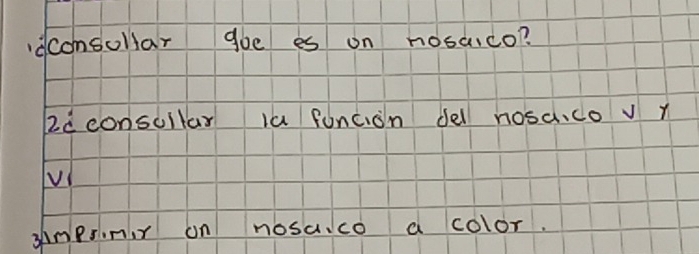 1¿consultar que es un mosaico?
2¿ consultar la función del mosaico v y
vi
3imprimir un mosaico a color.